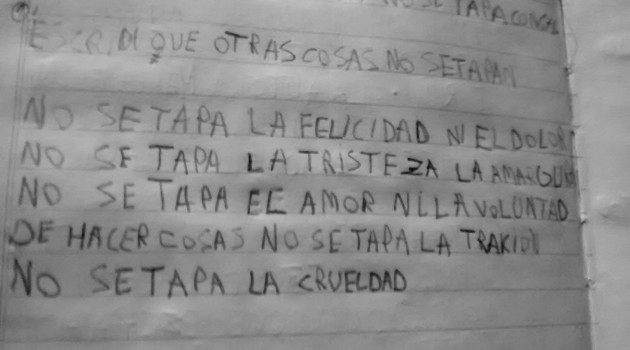 NO SE TAPA CON
ESCRIDI QUE OTRAS COSAS NO SE TAPAN
NO SE TAPA LA FELICIDAD NI EL DOLOR
NO SE TAPA LA TRISTEZA LA AMARGURA
NO SE TAPA EL AMOR NI LA VOLUNTAD
DE HACER COSAS NO SE TAPA LA TRAKION
NO SE TAPA LA CRUELDAD